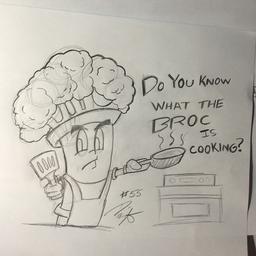 DO YOU KNOW
WHAT THE
BROC
IS
COOKING?
#55